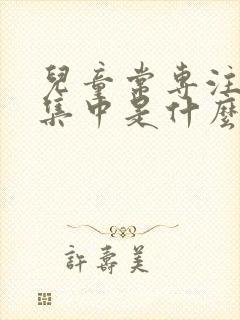 兒童常專注
集中是什麼
許壽美